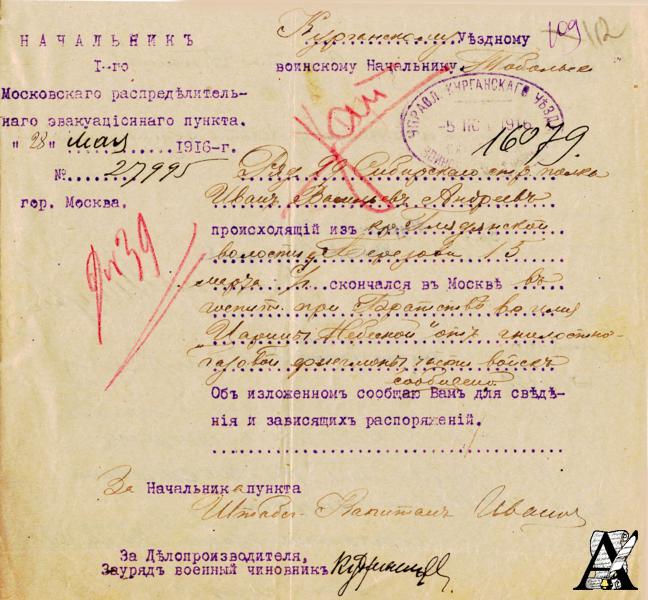 НАЧАЛЬНИКЪ
I-го
Московскаго распредѣлитель-
наго эвакуаціоннаго пункта.
" 28 " мая 1916-г.
№ 27995
гор. Москва.
Курганскому Уѣздному
воинскому Начальнику. Тобольск
109
112
УПРАВЛ. КУРГАНСКАГО УѢЗД.
-5 1916
16079.
Ряд. Сибирскаго стр. полка
Иванъ Васильевъ Андреевъ
происходящій изъ кр. Глядянской
волости д Березова 15
марта с/г скончался въ Москвѣ въ
госпит. при Братствѣ во имя
"Царицы Небесной" отъ гнилостно-
газовой флегмоны, части войскъ
сообщено
Объ изложенномъ сообщаю Вамъ для свѣдѣ-
нія и зависящихъ распоряженій.
За Начальника пункта
Штабсъ-Капитанъ Иванов
За Дѣлопроизводителя,
Зауряд военный чиновникъ
А